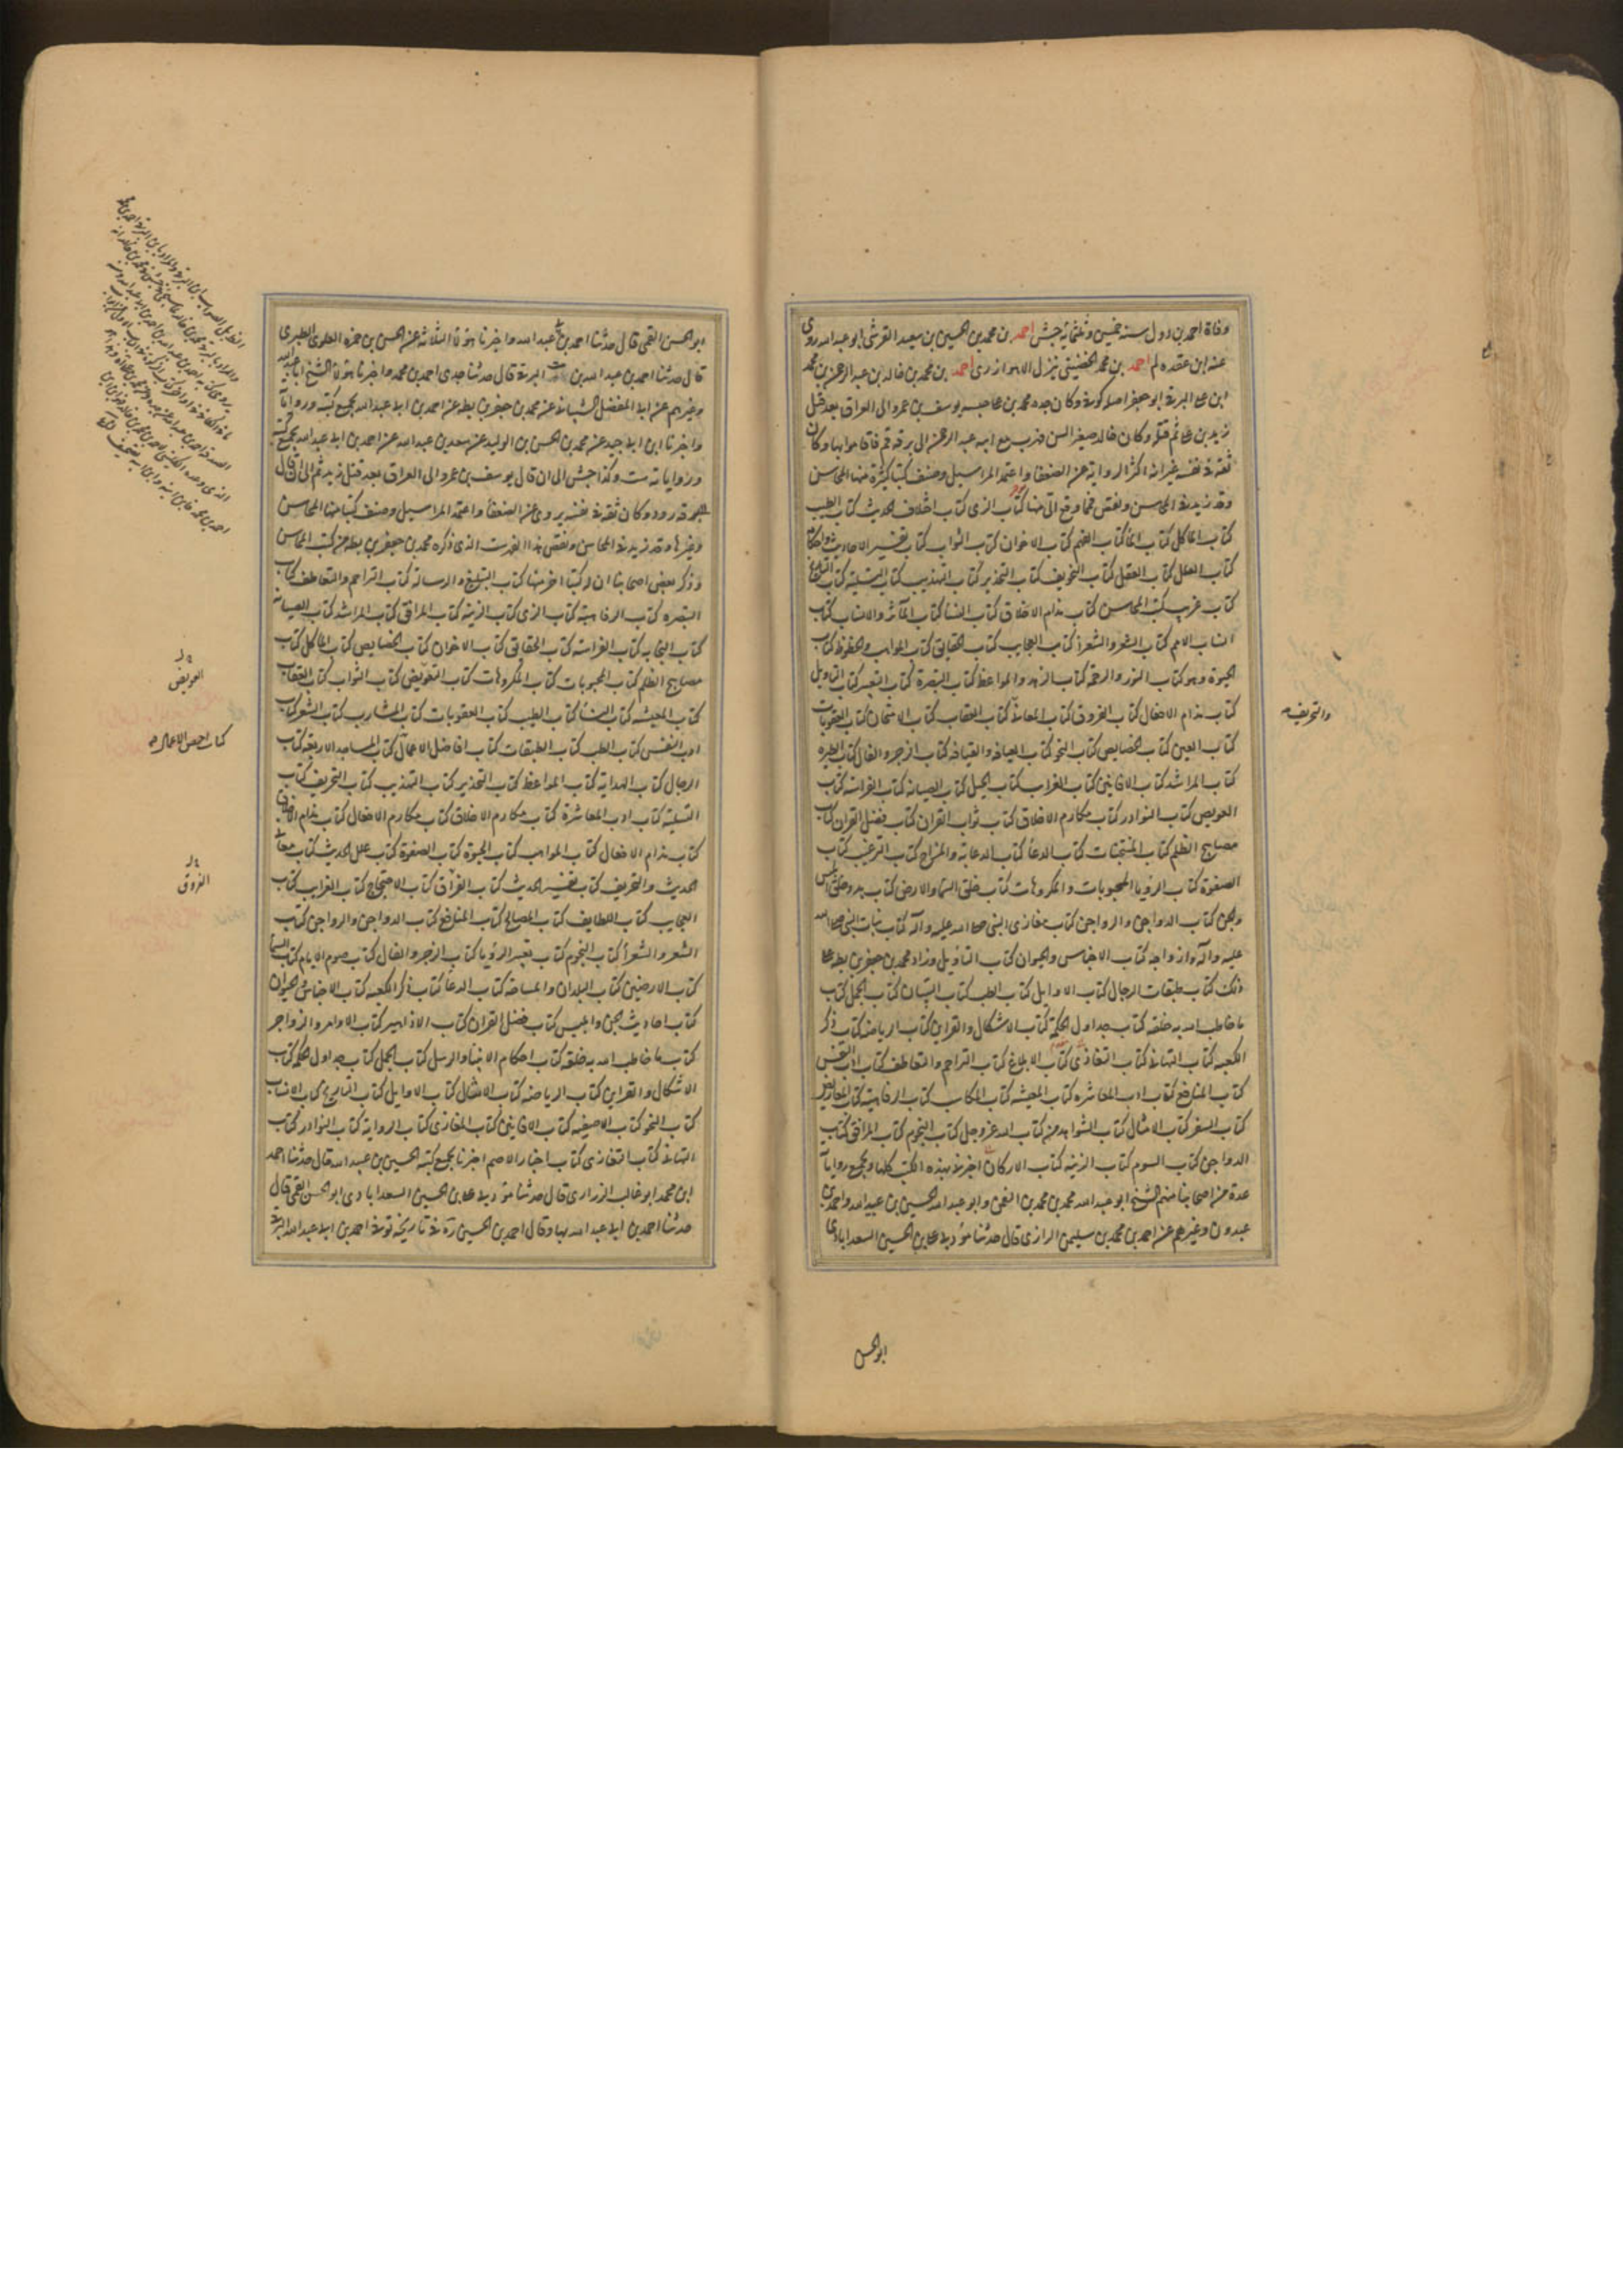 وفاة احمد بن دول سنة خمسين وثلثمائة جش احمد بن محمد بن الحسين بن سعيد القرشى ابو عبد الله روى
عنه ابن عقده لم احمد بن محمد الحضينى نزل الاهواز رى احمد بن محمد بن خالد بن عبد الرحمن بن محمد
ابن على البرقى ابو جعفر اصله كوفى وكان جده محمد بن على حبسه يوسف بن عمر والى العراق بعد قتل
زيد بن على ثم قتله وكان خالد صغير السن فهرب مع ابيه عبد الرحمن الى برقه قم فاقاموا بها وكان
ثقة فى نفسه غير انه اكثر الرواية عن الضعفا واعتمد المراسيل وصنف كتبا كثيرة منها المحاسن
وقد زيد فى المحاسن ونقص فما وقع الى منها كتاب الزى كتاب اختلاف الحديث كتاب الطيب
كتاب الماكل كتاب الماء كتاب الفهم كتاب الاخوان كتاب الثواب كتاب تفسير الاحاديث واحكامه
كتاب العلل كتاب العقل كتاب التخويف كتاب التحذير كتاب التهذيب كتاب التسلية كتاب التاريخ
كتاب غريب كتب المحاسن كتاب مذام الاخلاق كتاب النسا كتاب المآثر والانساب كتاب
انساب الامم كتاب الشعر والشعرا كتاب العجايب كتاب الحقايق كتاب المواهب والحظوظ كتاب
الحيوة وهو كتاب النور والرحمة كتاب الزهد والمواعظ كتاب التبصرة كتاب التعبير كتاب التاويل
كتاب مذام الافعال كتاب الفروق كتاب المعانى كتاب العقاب كتاب الامتحان كتاب العقوبات
كتاب العين كتاب الخصايص كتاب النحو كتاب العيافه والقيافه كتاب الزجر والفال كتاب الطيره
كتاب المراشد كتاب الافانين كتاب الغرايب كتاب الحيل كتاب الصيانه كتاب الفراسه كتاب
العويص كتاب النوادر كتاب مكارم الاخلاق كتاب ثواب القران كتاب فضل القران كتاب
مصابيح الظلم كتاب المنتخبات كتاب الدعا كتاب الدعابة والمزاح كتاب الترغيب كتاب
الصفوة كتاب الرؤيا المحبوبات والمكروهات كتاب خلق السما والارض كتاب بدو خلق ابليس
والجن كتاب الدواجن والرواجن كتاب مغازى النبى صلى الله عليه وآله كتاب بنات النبى صلى الله
عليه وآله وازواجه كتاب الاجناس والحيوان كتاب التاويل وزاد محمد بن جعفر بن بطه على
ذلك كتاب طبقات الرجال كتاب الاوايل كتاب الطب كتاب التبيان كتاب الجمل كتاب
ما خاطب الله به خلقه كتاب جداول الحكمة كتاب الاشكال والقراين كتاب الرياضه كتاب ذكر
الكعبه كتاب التهانى كتاب التعازى كتاب الابلاغ كتاب التراحم والتعاطف كتاب ادب النفس
كتاب المنافع كتاب ادب المعاشره كتاب المعيشه كتاب المكاسب كتاب الرفاهية كتاب المعاريض
كتاب السفر كتاب الامثال كتاب الشواهد من كتاب الله عز وجل كتاب النجوم كتاب المرافق كتاب
الدواجن كتاب السوم كتاب الزينه كتاب الاركان اخبرنى بهذه الكتب كلها وبجميع رواياته
عدة من اصحابنا منهم الشيخ ابو عبد الله محمد بن محمد بن النعمن وابو عبد الله الحسين بن عبيد الله واحمد بن
عبدون وغيرهم عن احمد بن محمد بن سليمن الزرارى قال حدثنا مؤدبى على بن الحسين السعدابادى
والتحريف
ابو الحسن
ابو الحسن القمى قال حدثنا احمد بن ابى عبد الله واخبرنا هؤلاء الثلاثة عن الحسن بن حمزه العلوى الطبرى
قال حدثنا احمد بن عبد الله بن بنت البرقى قال حدثنا جدى احمد بن محمد واخبرنا هؤلاء الا الشيخ ابا عبد الله
وغيرهم عن ابى المفضل الشيبانى عن محمد بن جعفر بن بطه عن احمد بن ابى عبد الله بجميع كتبه ورواياته
واخبرنا ابن ابى جيد عن محمد بن الحسن بن الوليد عن سعد بن عبد الله عن احمد بن ابى عبد الله بجميع كتبه
ورواياته ست وكذا جش الى ان قال يوسف بن عمر والى العراق بعد قتل زيد ثم الى ان قال
برقه رود وكان ثقة فى نفسه يروى عن الضعفا واعتمد المراسيل وصنف كتبا منها المحاسن
وغيرها وقد زيد فى المحاسن ونقص هذا الفهرست الذى ذكره محمد بن جعفر بن بطه من كتب المحاسن
وذكر بعض اصحابنا ان له كتبا اخر منها كتاب التبليغ والرسالة كتاب التراحم والتعاطف كتاب
التبصره كتاب الرفاهية كتاب الزى كتاب الزينه كتاب المرافق كتاب المراشد كتاب الصيانه
كتاب النجابه كتاب الفراسه كتاب الحقايق كتاب الاخوان كتاب الخصايص كتاب الماكل كتاب
مصابيح الظلم كتاب المحبوبات كتاب المكروهات كتاب التعويض كتاب الثواب كتاب العقاب
كتاب المعيشه كتاب النسا كتاب الطيب كتاب العقوبات كتاب المشارب كتاب الشعر كتاب
ادب النفس كتاب الطب كتاب الطبقات كتاب افاضل الاعمال كتاب المساجد الاربعه كتاب
الرجال كتاب الهدايه كتاب المواعظ كتاب التحذير كتاب التهذيب كتاب التحريف كتاب
التسلية كتاب ادب المعاشرة كتاب مكارم الاخلاق كتاب مكارم الافعال كتاب مذام الاخلاق
كتاب مذام الافعال كتاب المواهب كتاب الحيوة كتاب الصفوة كتاب علل الحديث كتاب معانى
الحديث والتحريف كتاب تفسير الحديث كتاب الفراق كتاب الاحتجاج كتاب الغرايب كتاب
العجايب كتاب اللطايف كتاب المصالح كتاب المنافع كتاب الدواجن والرواجن كتاب
الشعر والشعرا كتاب النجوم كتاب تعبير الرؤيا كتاب الزجر والفال كتاب صوم الايام كتاب السما
كتاب الارضين كتاب البلدان والمساحه كتاب الدعا كتاب ذكر الكعبه كتاب الاجناس والحيوان
كتاب احاديث الجن وابليس كتاب فضل القران كتاب الازاهير كتاب الاوامر والزواجر
كتاب ما خاطب الله به خلقه كتاب احكام الانبيا والرسل كتاب الجمل كتاب جداول الحكمه كتاب
الاشكال والقراين كتاب الرياضه كتاب الامثال كتاب الاوايل كتاب التاريخ كتاب الانساب
كتاب النحو كتاب الاصفيه كتاب الافانين كتاب المغازى كتاب الروايه كتاب النوادر كتاب
التهانى كتاب التعازى كتاب اخبار الاصم اخبرنا بجميع كتبه الحسين بن عبيد الله قال حدثنا احمد
ابن محمد ابو غالب الزرارى قال حدثنا مؤدبى على بن الحسين السعدابادى ابو الحسن القمى قال
حدثنا احمد بن ابى عبد الله بها وقال احمد بن الحسين ره فى تاريخه توفى احمد بن ابى عبد الله البرقى
العويص
كتاب اخص الاعمال
الفروق